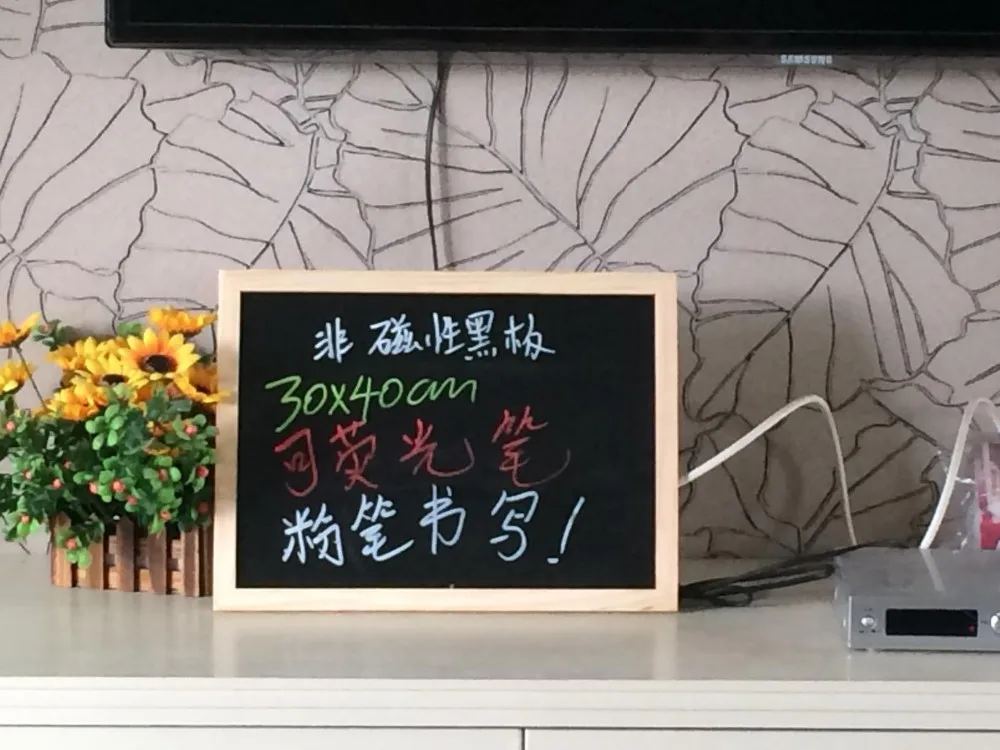 SAMSUNG
非磁性黑板
30x40cm
可荧光笔
粉笔书写!